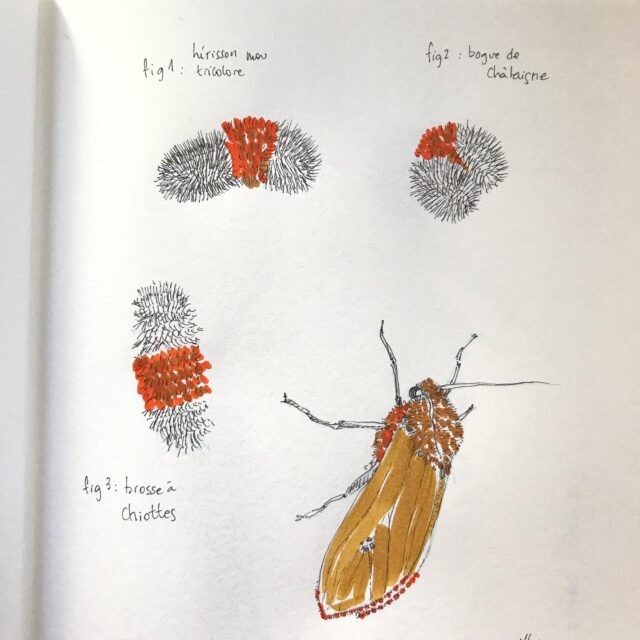 hérisson mou
fig 1 : tricolore
fig 2 : bogue de
châtaigne
fig 3 : brosse à
Chiottes